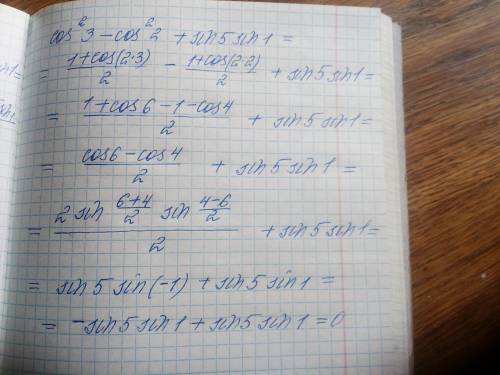 cos²3 - cos²2 + sin5sin1 =
= (1+cos(2·3))/2 - (1+cos(2·2))/2 + sin5sin1 =
= (1+cos6-1-cos4)/2 + sin5sin1 =
= (cos6-cos4)/2 + sin5sin1 =
= (2 sin (6+4)/2 sin (4-6)/2)/2 + sin5sin1 =
= sin5sin(-1) + sin5sin1 =
= -sin5sin1 + sin5sin1 = 0